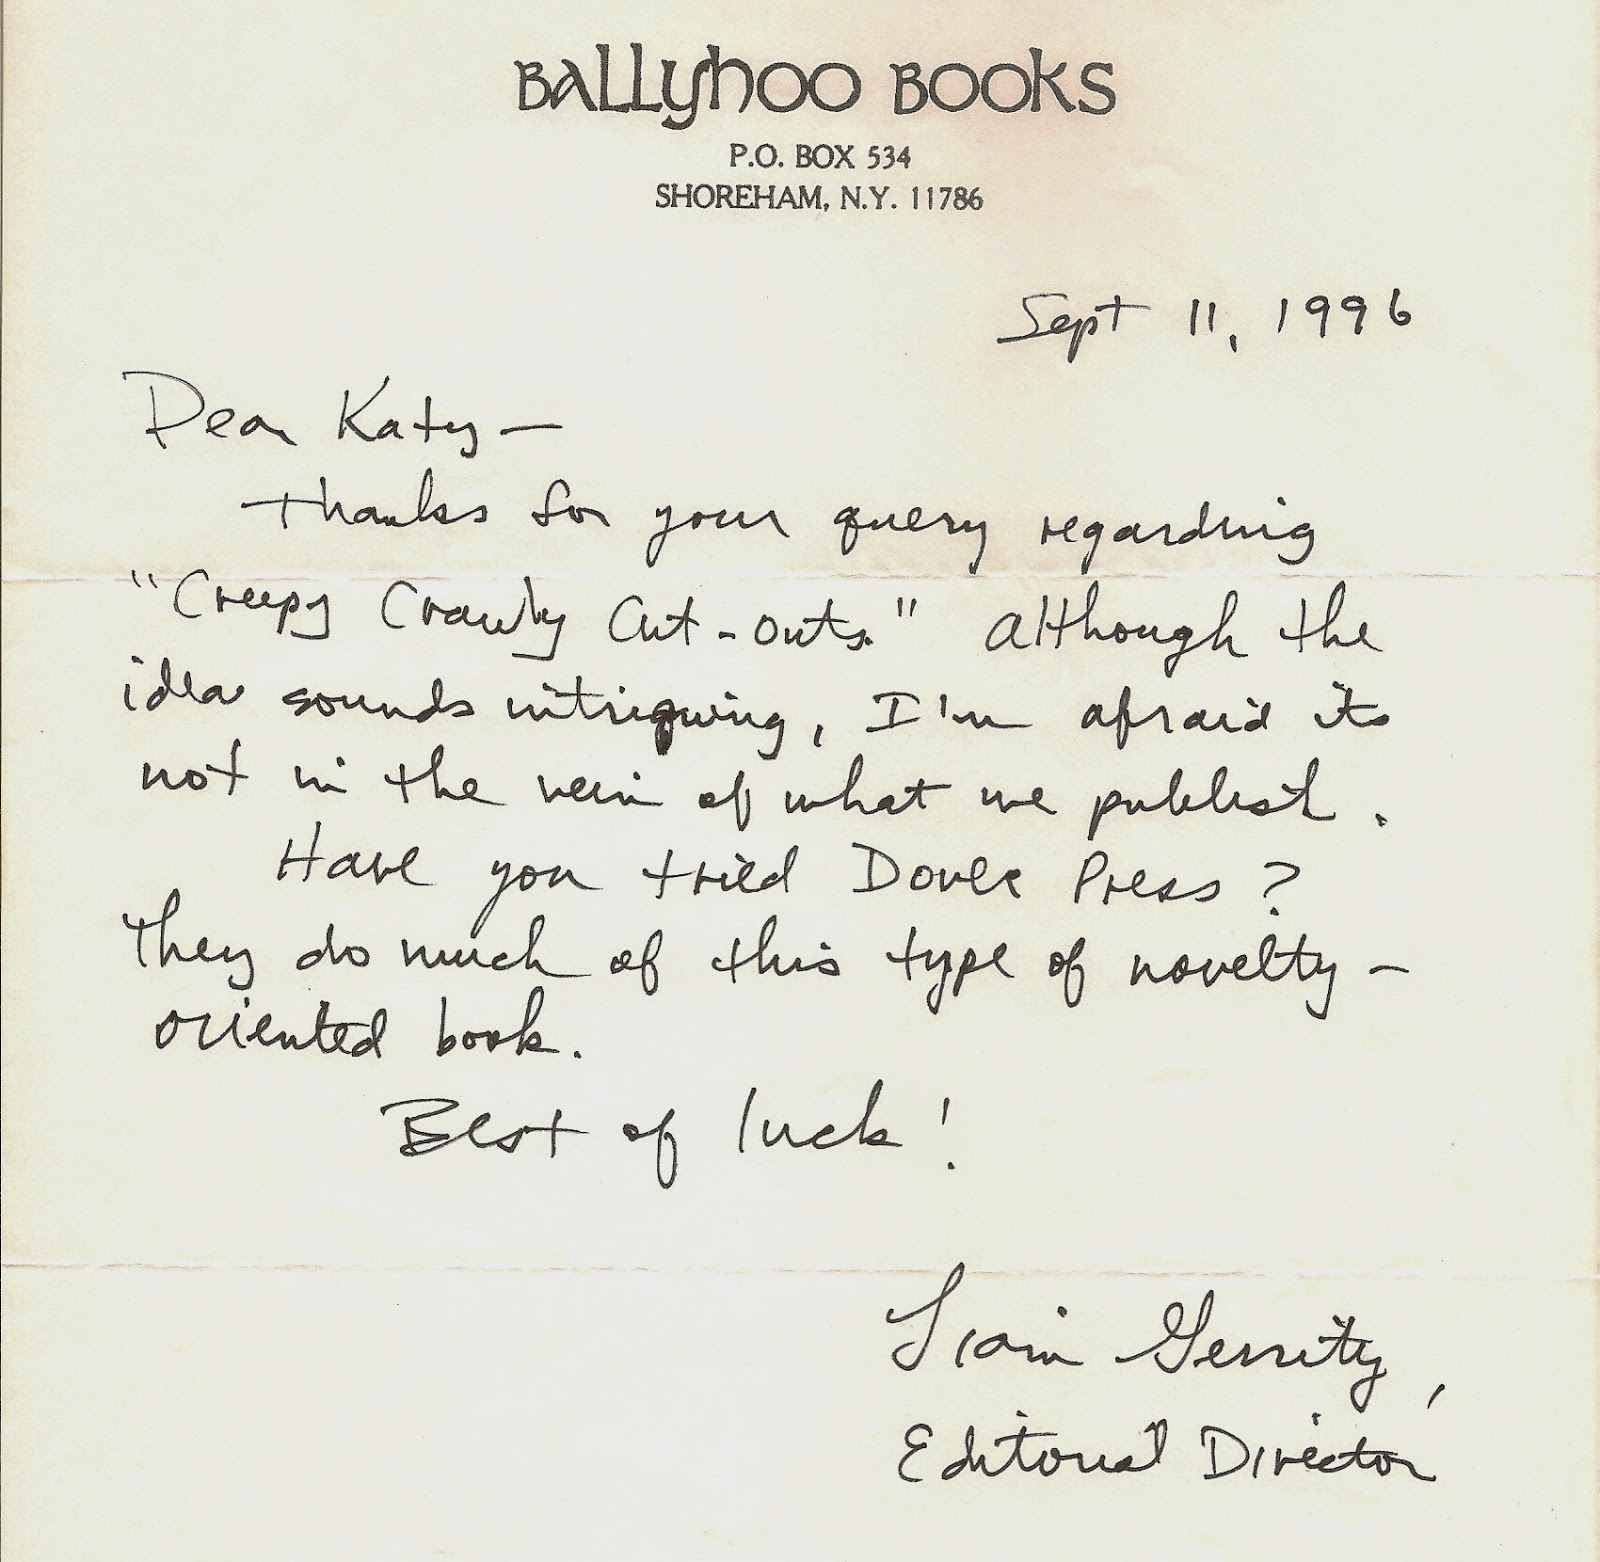 BALLYHOO BOOKS
P.O. BOX 534
SHOREHAM, N.Y. 11786
Sept 11, 1996
Dear Katy —
Thanks for your query regarding
"Creepy Crawly Cut-outs." Although the
idea sounds intriguing, I'm afraid its
not in the vein of what we publish.
Have you tried Dover Press?
They do much of this type of novelty-
oriented book.
Best of luck!
Liam Gerrity,
Editorial Director